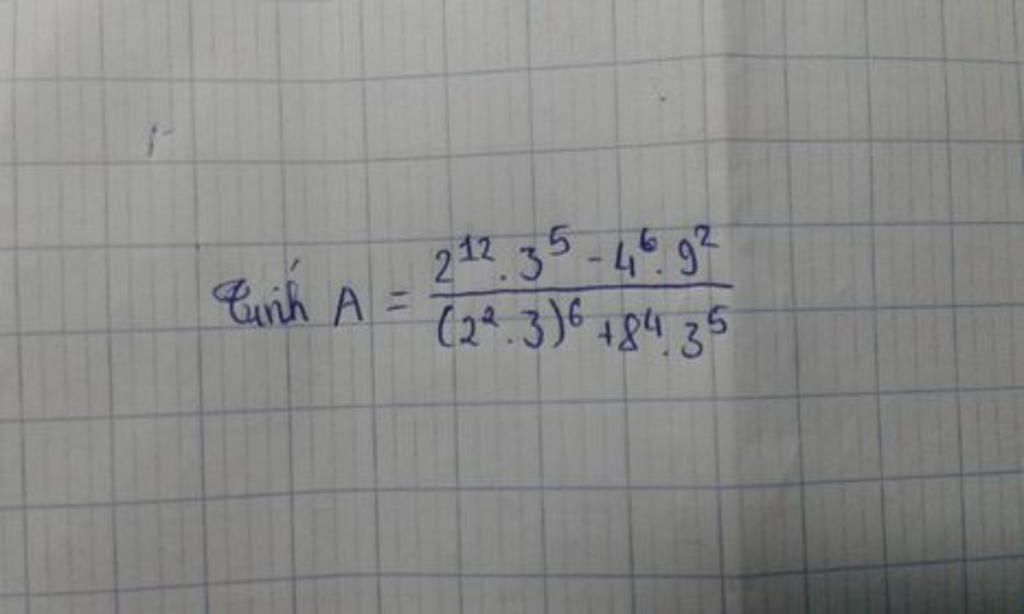 Tính A = \frac{2^{12} . 3^5 - 4^6 . 9^2}{(2^2 . 3)^6 + 8^4 . 3^5}